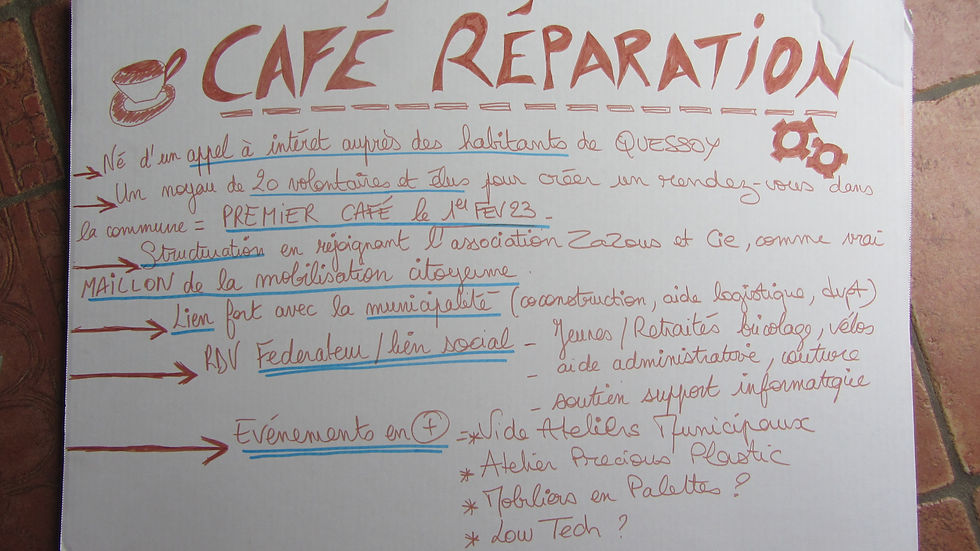 CAFÉ RÉPARATION
Né d'un appel à intérêt auprès des habitants de QUESSOY
Un noyau de 20 volontaires et élus pour créer un rendez-vous dans
la commune = PREMIER CAFÉ le 1er FEV 23
Structuration en rejoignant l'association ZaZous et Cie, comme vrai
MAILLON de la mobilisation citoyenne.
Lien fort avec la municipalité (coconstruction, aide logistique, dvpt)
RDV Fédérateur / lien social - Jeunes / Retraités bricolage, vélos
- aide administrative, couture
- soutien support informatique
Evénements en + = * Vide Ateliers Municipaux
* Atelier Precious Plastic
* Mobiliers en Palettes ?
* Low Tech ?